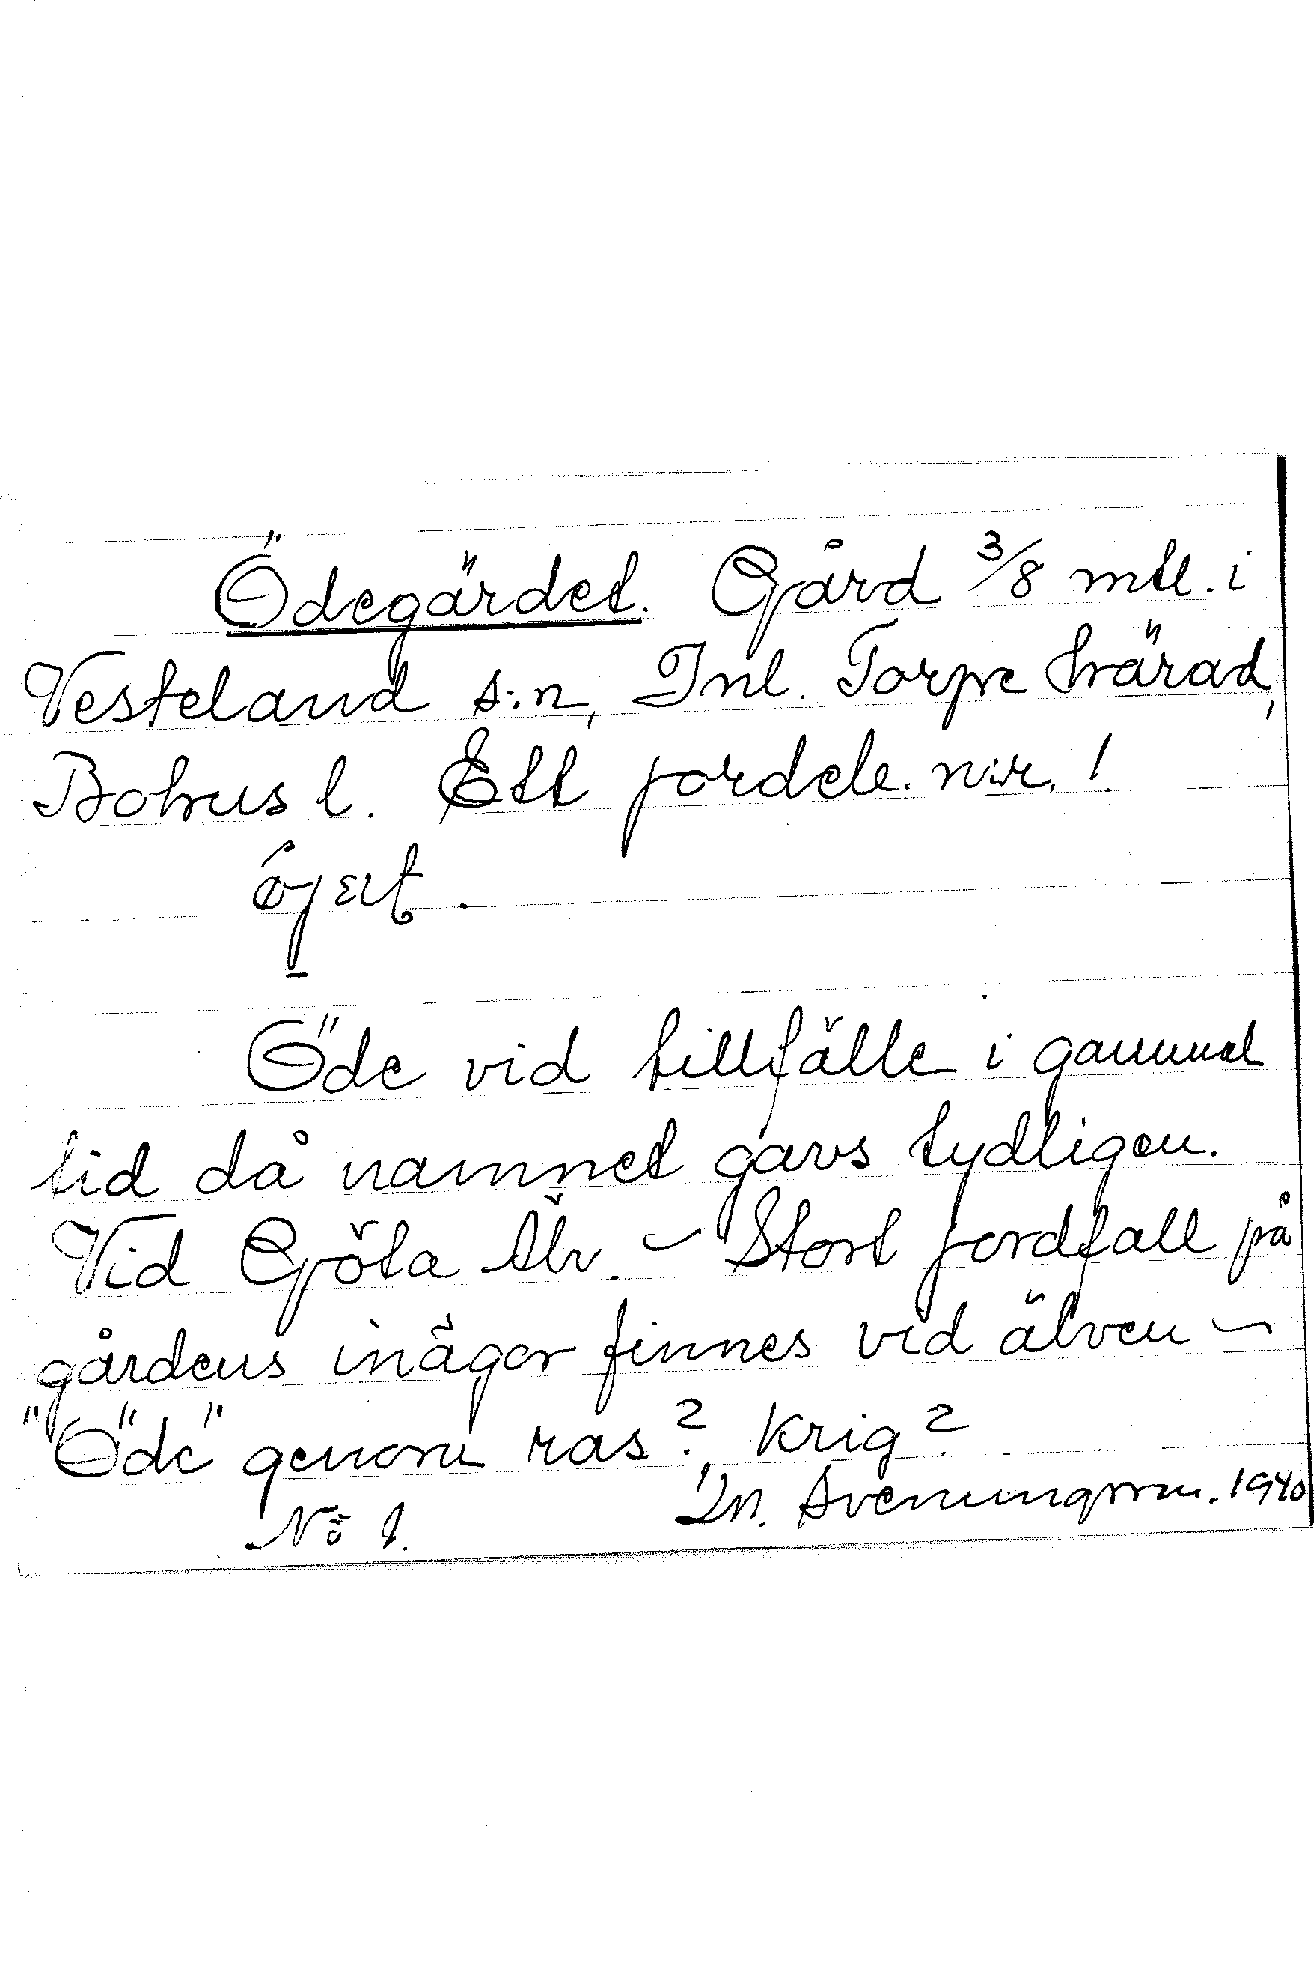 Ödegärdet. Gård 3/8 mtl. i
Vesteland s:n, Inl. Torpe härad,
Bohus l. Ett jordeb. n:r. 1
Öde vid tillfälle i gammal
tid då namnet gavs tydligen.
Vid Göta älv. – Stort jordfall på
gårdens inägor finnes vid älven –
"Öde" genom ras?, Krig?
No 1. M. Svenungsson. 1940